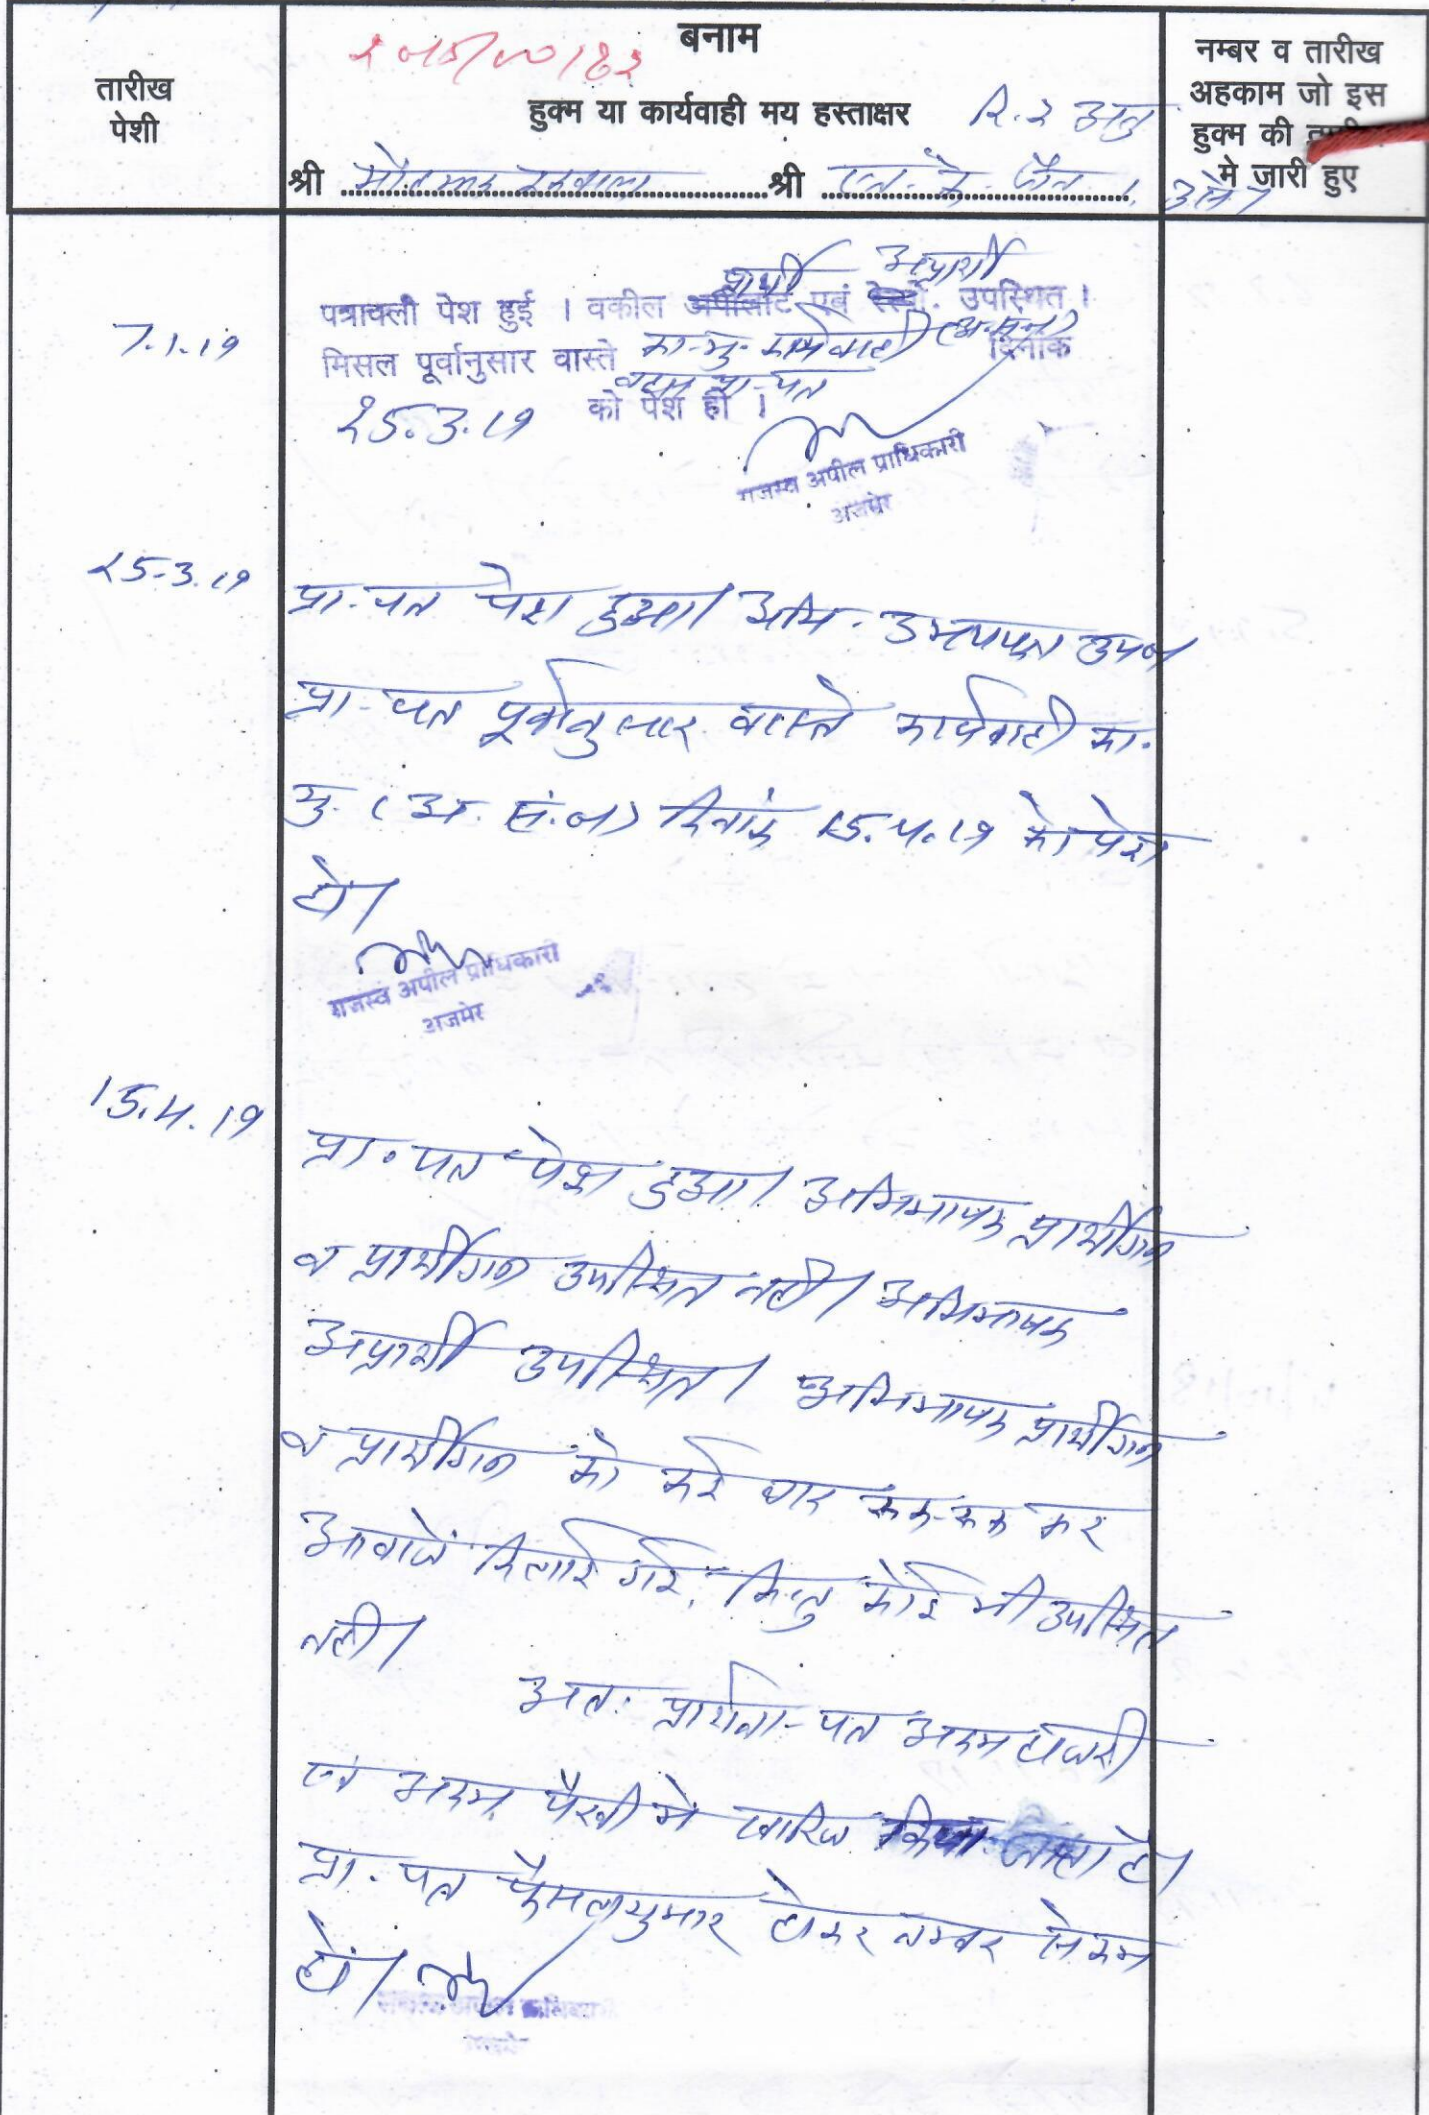 बनाम
तारीख
पेशी
हुक्म या कार्यवाही मय हस्ताक्षर
नम्बर व तारीख
अहकाम जो इस
हुक्म की
मे जारी हुए
श्री श्री एन. के. जैन
7.1.19
प्रार्थी अप्रार्थी
पत्रावली पेश हुई । वकील अपीलांट एवं रेस्पो. उपस्थित ।
मिसल पूर्वानुसार वास्ते का-मु. कार्यवाही दिनांक
बहस प्रा-पत्र
25.3.19 को पेश हो ।
राजस्व अपील प्राधिकारी
अजमेर
25-3.19
प्रा.-पत्र पेश हुआ। अभि. उभयपक्ष उप०
प्रा-पत्र पूर्वानुसार वास्ते कार्यवाही का.
मु. (अ. सं.०१) दिनांक 15.4.19 को पेश
हो।
राजस्व अपील प्राधिकारी
अजमेर
15.4.19
प्रा.पत्र पेश हुआ। अभिभाषक प्रार्थीगण
व प्रार्थीगण उपस्थित नही। अभिभाषक
अप्रार्थी उपस्थित। अभिभाषक प्रार्थीगण
व प्रार्थीगण को कई बार रूक-रूक कर
आवाजें दिलाई गई, किन्तु कोई भी उपस्थित
नही।
अतः प्रार्थना-पत्र अदम हाजरी
एवं अदम पैरवी मे खारिज किया जाता है।
प्रा.-पत्र फैसलशुमार होकर नम्बर से कम
हो।